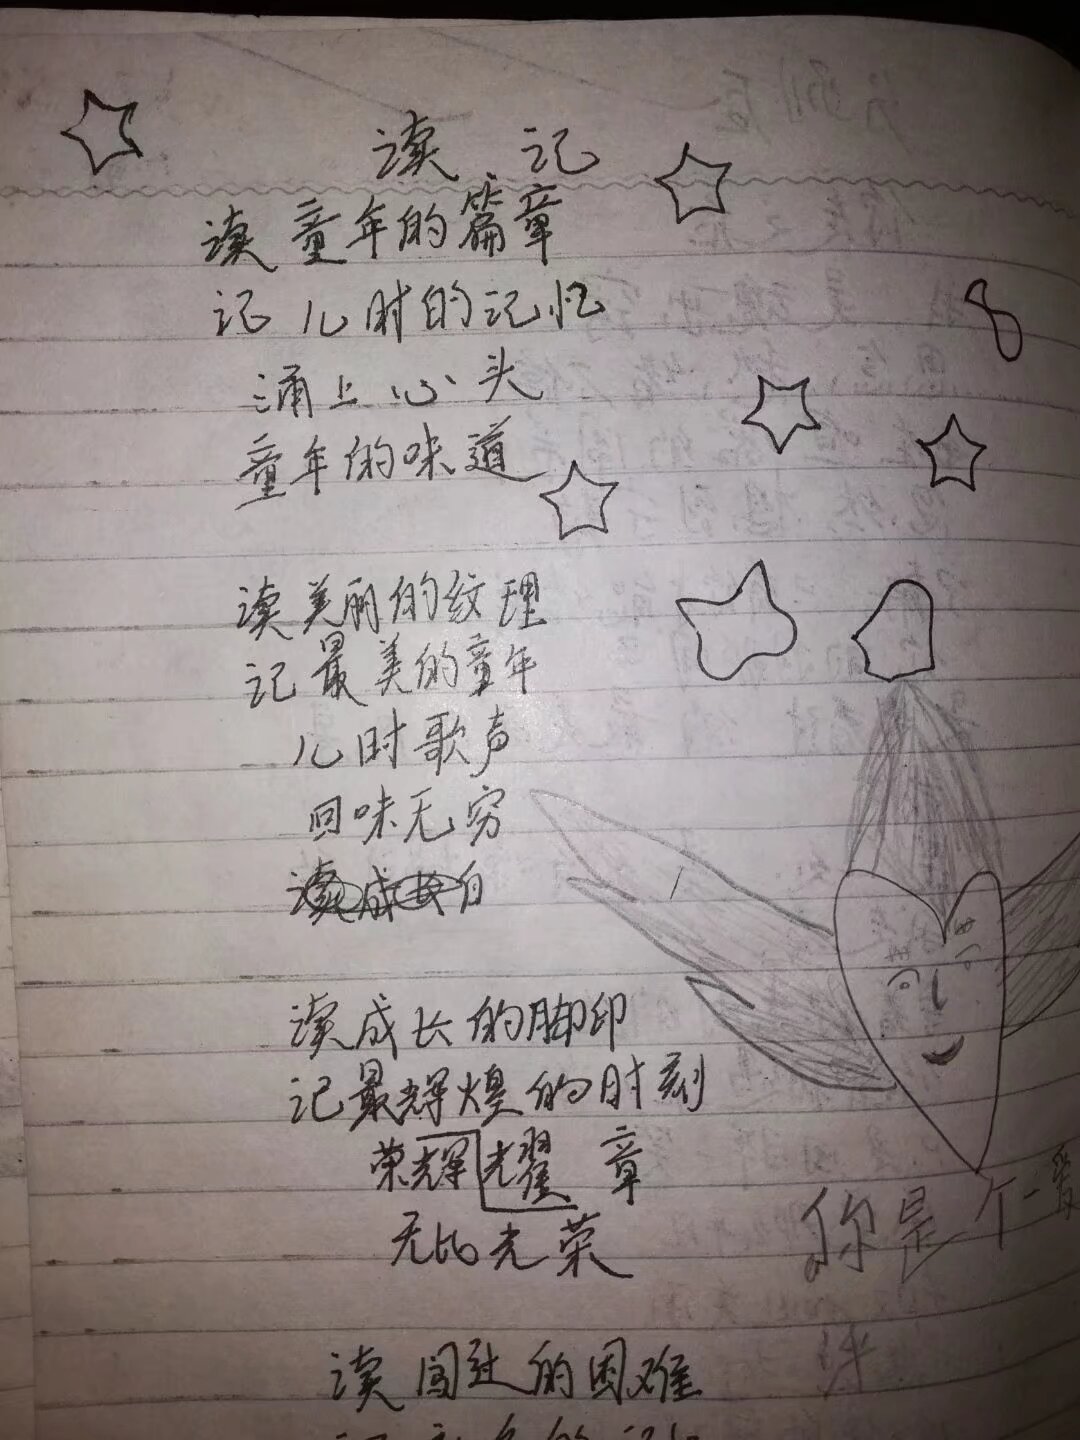 读 记
读童年的篇章
记儿时的记忆
涌上心头
童年的味道
读美丽的纹理
记最美的童年
儿时歌声
回味无穷
读成长的脚印
记最辉煌的时刻
荣辉耀章
无比光荣
你是个一
读闯过的困难